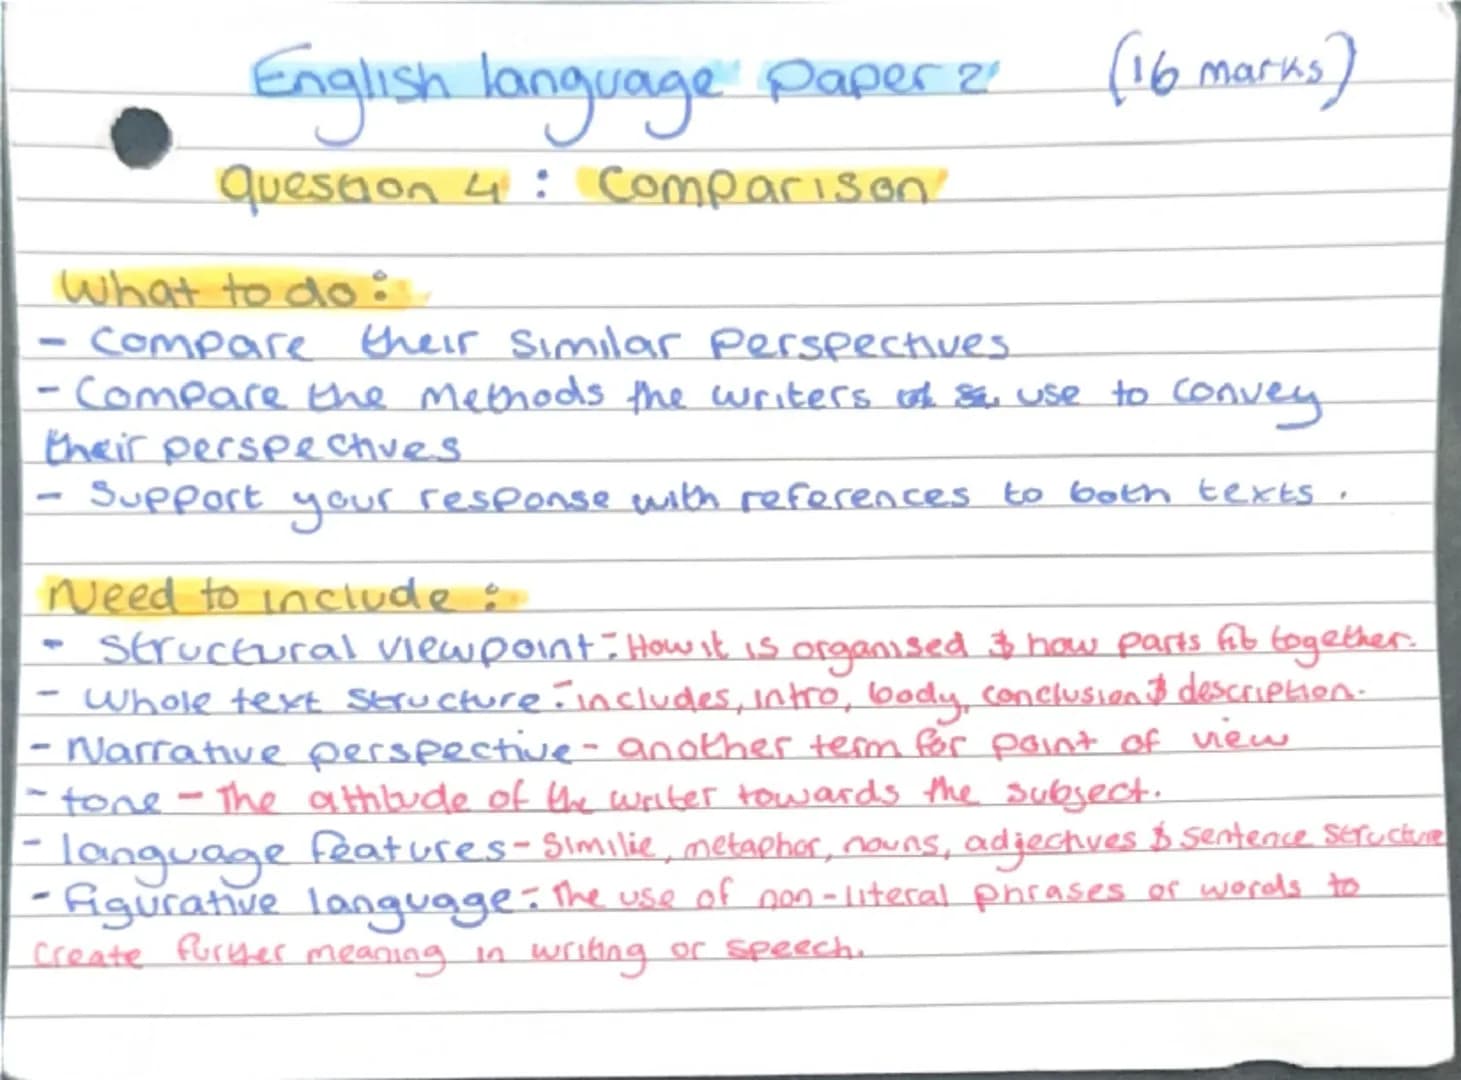 English language paper 2 (16 marks)
Question 4 : Comparison
What to do :
- Compare their similar perspectives
- Compare the methods the writers use to convey
their perspectives
- Support your response with references to both texts .
Need to include :
- Structural viewpoint - How it is organised & how parts fit together.
- Whole text structure - includes, intro, body, conclusion & description.
- Narrative perspective - another term for point of view
- tone - The attitude of the writer towards the subject.
- language features - Similie, metaphor, nouns, adjectives & sentence structure
- figurative language - The use of non-literal phrases or words to
create further meaning in writing or speech.